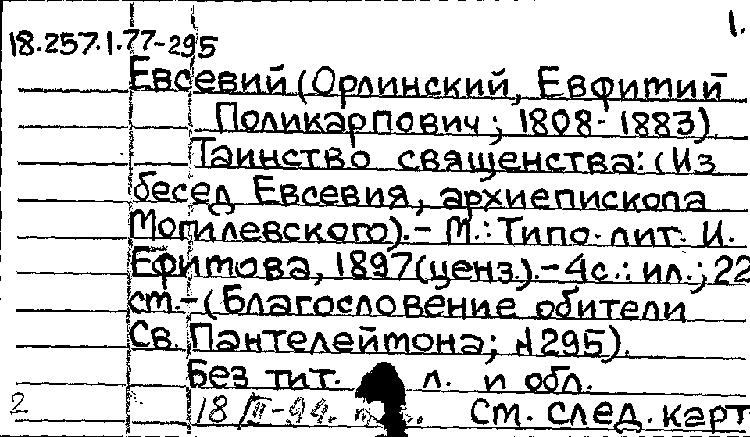 1.
18.257.1.77-295
Евсевий (Орлинский, Евфитий
Поликарпович; 1808-1883).
Таинство священства: (Из
бесед Евсевия, архиепископа
Могилевского).- М.: Типо-лит. И.
Ефитова, 1897(ценз).-4с.: ил.; 22
ст.-(Благословение обители
Св. Пантелейтона; №295).
Без тит. л. и обл.
2 18 III-94. Ст. след. карт